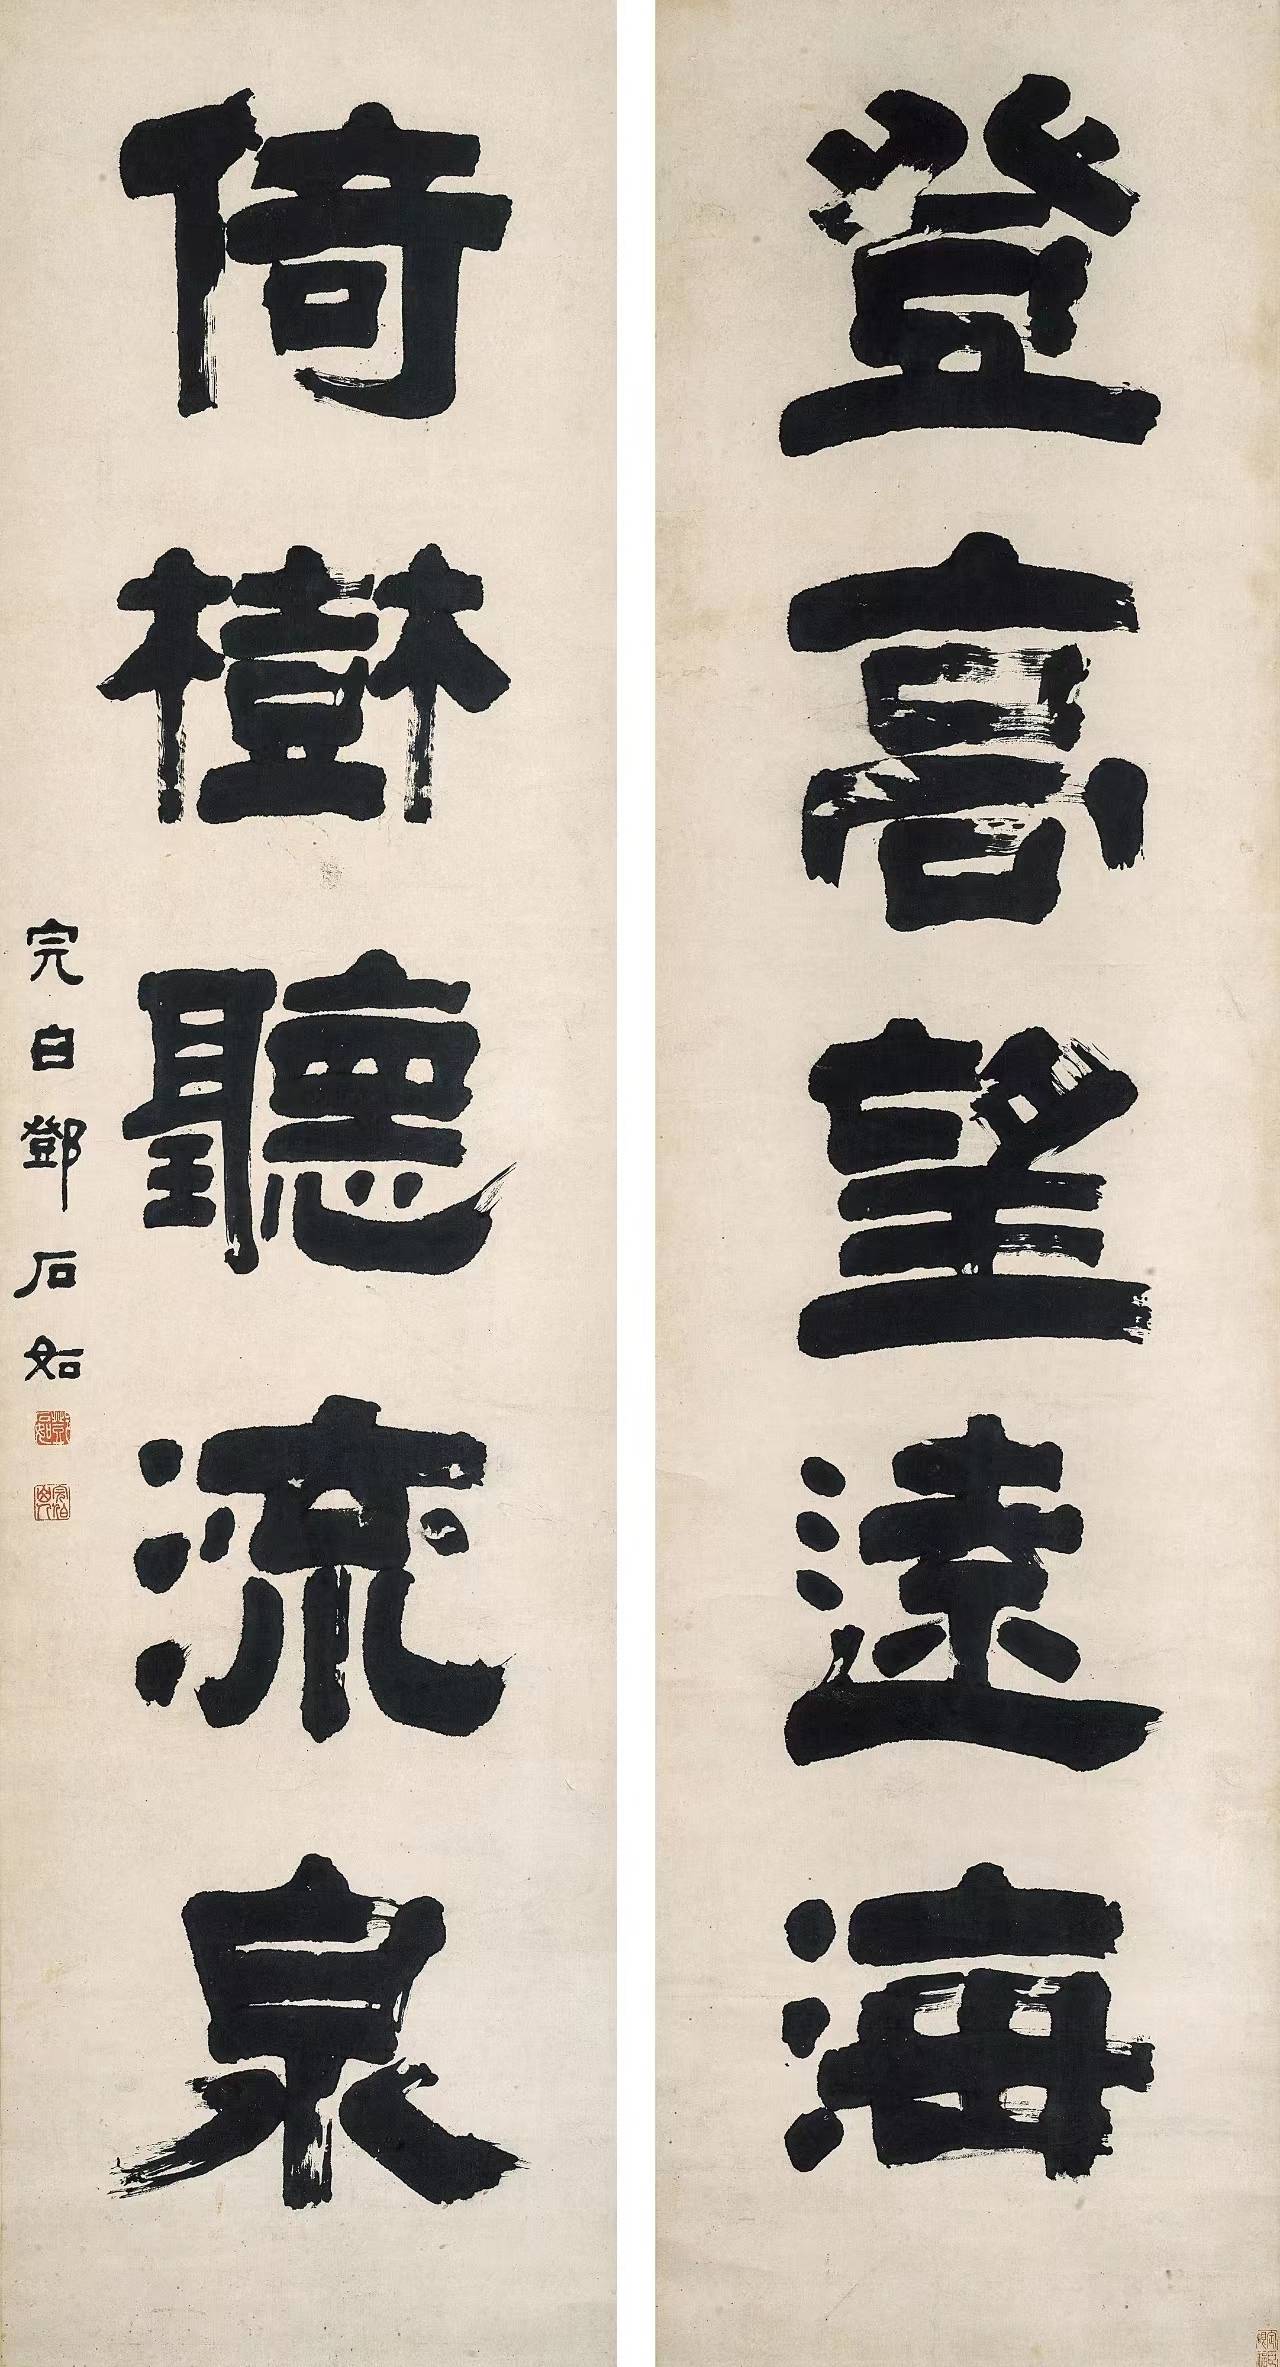 登高望遠海
倚樹聽流泉
完白鄧石如